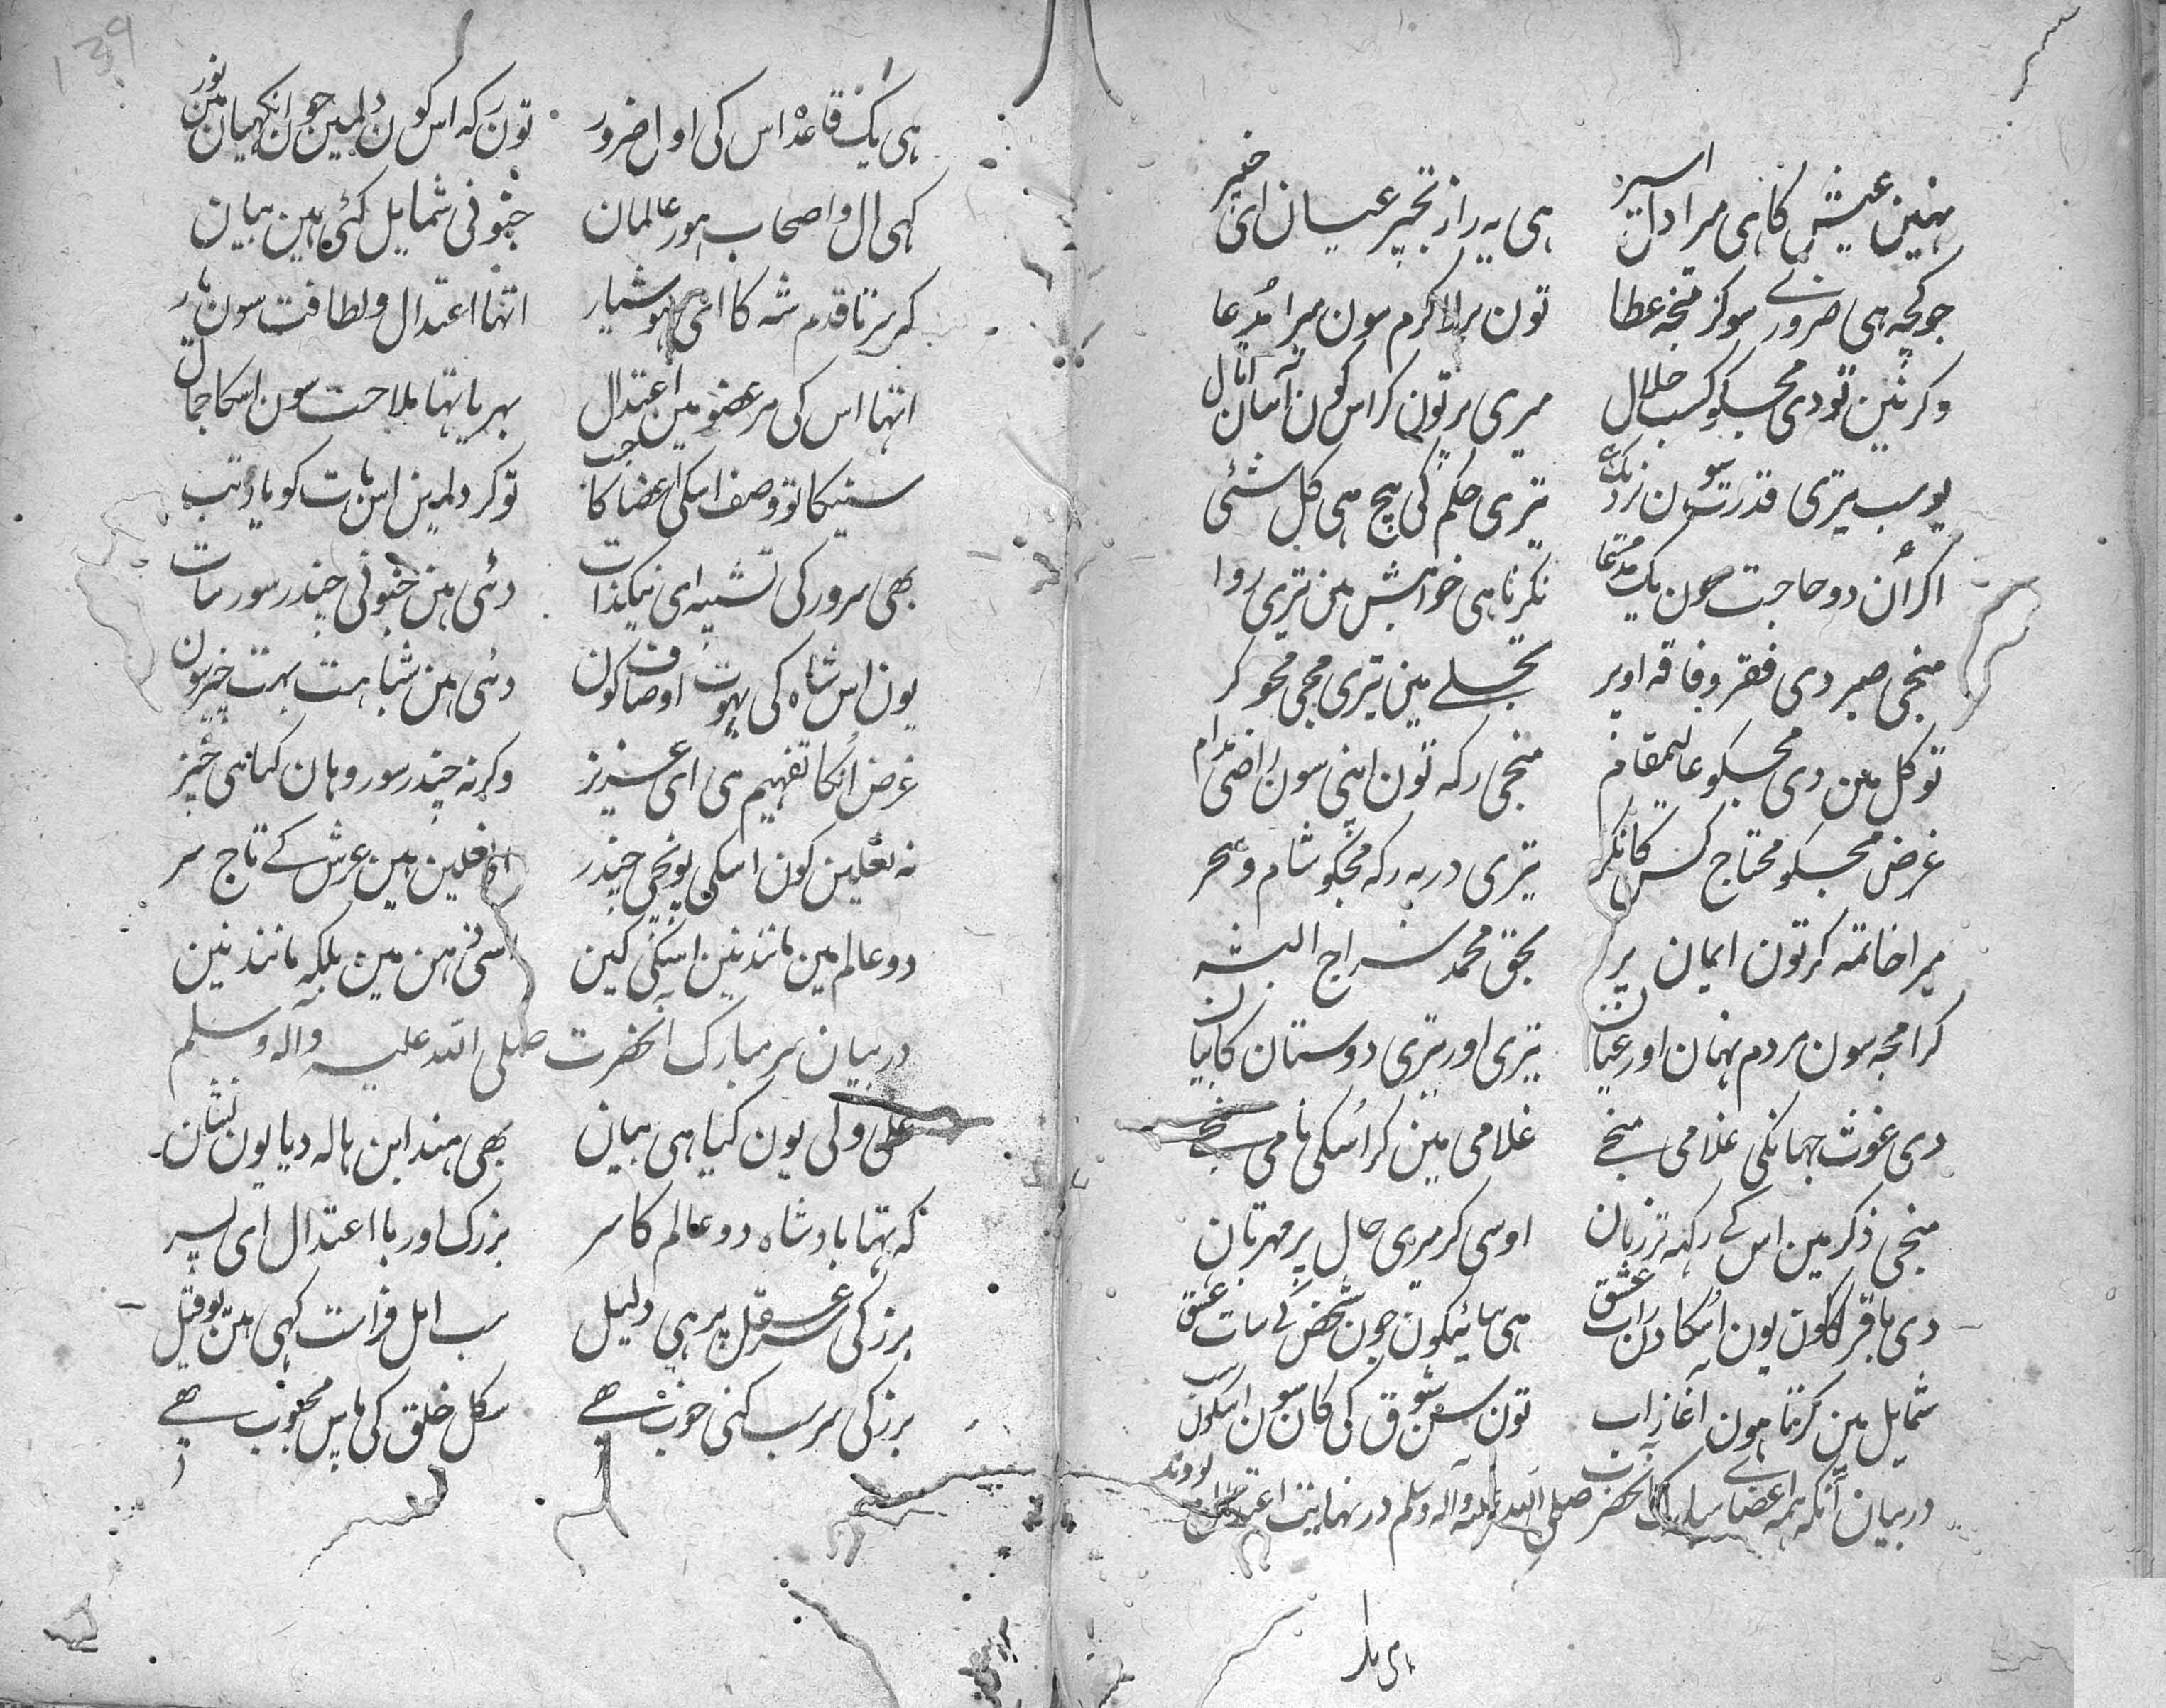 نہین عیش کا ہی مرا دل اسیر ہی یہ راز تجپر عیان ای خبیر
جو کچہ ہی ضروری سو کر منجہ عطا تون بر لا کرم سون میرا مُدعا
وگر نین تو دی مجسکو کسب حلال میری پر تون کر اس کون آسان
یو سب تیری قدرت سون نزدیک تیری حکم کی بیچ ہی کل شئی
اگر اُن دو حاجت سون یک مدعا نکرنا ہی خواہش مین تیری روا
منجی صبر دی فقر و فاقہ اوپر تجلے مین تیری مجی محو کر
توکل مین دی مجسکو عالیمقام منجی رکہ تون اپنی سون راضی مدام
غرض مجسکو محتاج کس کا نکر تیری در پہ رکہ مجکو شام و سحر
میرا خاتمہ کر تون ایمان پر بحق محمد سراج البشر
کرا مجہ سون ہردم نہان اور عیان تیری اور تیری دوستان کا بیان
دی غوث جہانکی غلامی منجے غلامی مین کر اُسکی نامی منجے
منجی ذکر مین اس کے رکہہ تر زبان اوسی کر مری حال پر مہربان
دی باقر کون یون اُسکا عشق ہی سائیکون جون شخص کے سات عشق
شمایل مین کرتا ہون آغاز اب تون سن شوق کی کان سون اسکون سب
در بیان آنکہ ہمہ اعضای مبارک آنحضرت صلی اللہ علیہ وآلہ وسلم در نہایت اعتدال بودند
ہی یک
139
ہی یک قاعدہ اس کی اول ضرور تون رکہ اس کون دلمین جون انکہیان مین نور
کہی ال و اصحاب ہور عالمان جنو نی شمایل کئی ہین بیان
کہ سر تا قدم شہ کا ای ہوشیار اتہا اعتدال و لطافت سون
اتہا اس کی ہر عضو مین اعتدال بہریا تہا ملاحت سون اسکا جمال
سنیگا تو وصف اسکی اعضا کا جب تو کر دلمین اس بات کو یاد تب
بہی سرور کی تشبیہ ای نیکذات دئی ہین جنو نی چندر سور سات
یون اس شاہ کی بہوت اوصاف کون دئی ہین شباہت بہت چیز سون
غرض اُنکا تفہیم ہی ای عزیز وگرنہ چندر سور وہان کیا ہی چیز
نہ نعلین کون اسکی پونچی چندر او نعلین ہین عرش کے تاج سر
دو عالم مین مانند نین اسکی کین اسی ہن مین بلکہ مانند نین
در بیان سر مبارک آنحضرت صلی اللہ علیہ وآلہ وسلم
علی ولی یون کیا ہی بیان بہی ہند ابن ہالہ دیا یون نشان
کہ تہا بادشاہ دو عالم کا سر بزرک اور با اعتدال ای پسر
بزرکی سر عقل پر ہی دلیل سب اہل فراست کہی ہین
بزرکی سر سب کنی خوب ہے سکل خلق کی پاس محبوب ہے